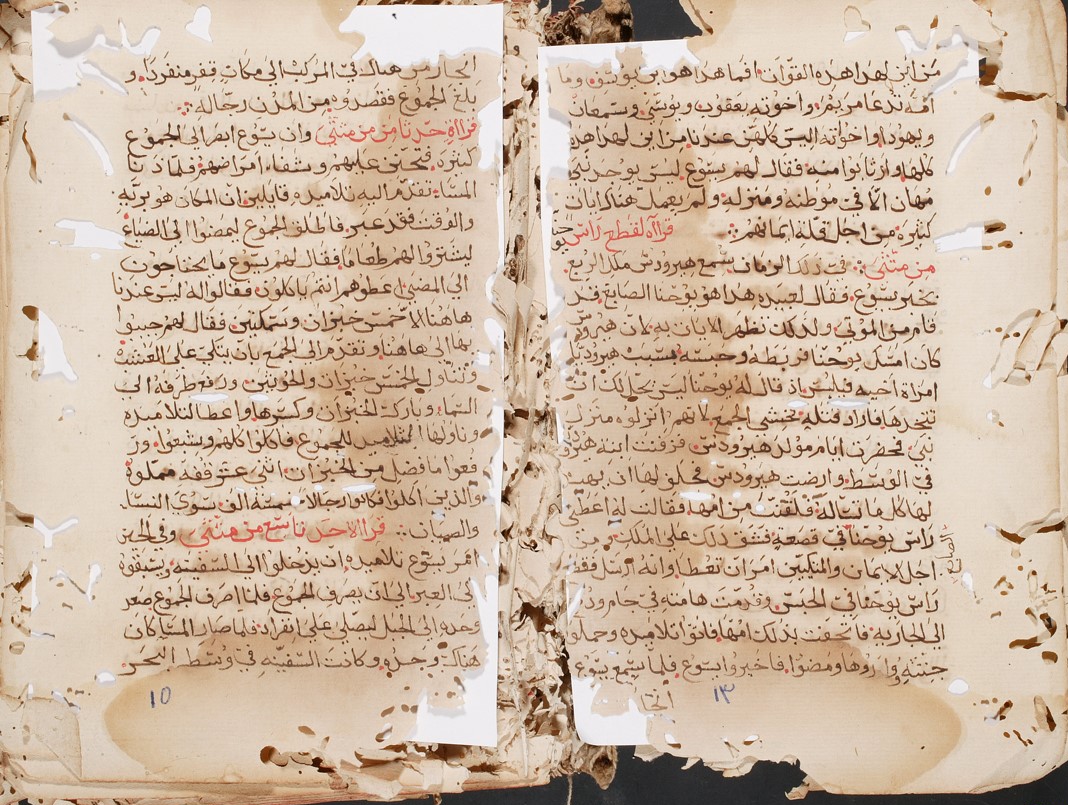 من اين لهدا هده القوات. اما هدا هو ابن يوسف. وما
امه تدعا مريم. واخوته يعقوب ويوسي وسمعان
ويهودا واخواته اليس كلهن عندنا. من اين لهدا هده
كلها وارتابوا منه فقال لهم يسوع ليس يوجد نبي
مهان الا في موطنه ومنزله ولم يعمل هناك ايات
كثيره من اجل قلة ايمانهم. قراآه لقطع راس يوحنا
من متى. في دلك الزمان سمع هيرودس ملك الربع
بخبر يسوع. فقال لعبيده هدا هو يوحنا الصابغ قد
قام من الموتى ولدلك تظهر الايات به لان هيرودس
كان امسك يوحنا فربطه وحبسه بسبب هيروديا
امراة اخيه اذ قال له يوحنا ليس يحل لك ان
تتخدها فاراد قتله فخشي الجمع لانهم انزلوه منزل
نبي فحضرت ايام مولد هيرودس. فرقصت ابنة هيروديا
في الوسط وارضت هيرودس فحلف لها ان يهب
لها كل ما تساله فلقنت من امها فقالت له اعطني
راس يوحنا في قصعه فشق دلك على الملك. من
اجل الايمان والمتكيين امر ان تعطا وانه ارسل فقطع
الصابغ
راس يوحنا في الحبس وقدمت هامته في جام ودفعت
الى الجاريه. فاتحفت بدلك امها فاتوا تلاميده وحملو
جثته وواروها ومضوا. فاخبروا يسوع فلما سمع يسوع
انحا
١٣
انحاز من هناك في المركب الى مكان قفر منفردا. و
بلغ الجموع فقصدوه من المدن رجاله
قراآه حد تامن من متى وان يسوع ابصر الى الجموع
كثيره. فتحنن عليهم وشفاء امراضهم فلما دنا
المسا. تقدم اليه تلاميده. قايلين ان المكان هو بريه
والوقت فقد عبر. فاطلق الجموع ليمضوا الى الضياع
ليشتروا لهم طعاما. فقال لهم يسوع ما يحتاجون
الى المضي اعطوهم انتم ياكلون. فقالوا له ليس عندنا
هاهنا الا خمس خبزات وسمكتين. فقال لهم جيبوا
بها الى هاهنا وتقدم الى الجمع بان يتكي على العشب
وتناول الخمس خبزات والحوتين. ورفع طرفه الى
السما. وبارك الخبزات وكسرها واعطا لتلاميده
وناولها التلاميد للجموع فاكلوا كلهم وشبعوا. ور
فعوا ما فضل من الخبزات. اثني عشر قفه مملوه
والذين اكلوا فكانوا رجالا خمسة الف سوى النسا.
والصبيان. قراآ الاحد تاسع من متى وفي الحين
امر يسوع تلاميده ان يدخلوا الى السفينه ويسبقوه
الى العبر الى ان يصرف الجموع فلما اصرف الجموع صعد
وحده الى الجبل ليصلي على انفراد. فلما صار المسا كان
هناك وحده. وكانت السفينه في وسط البحر
10